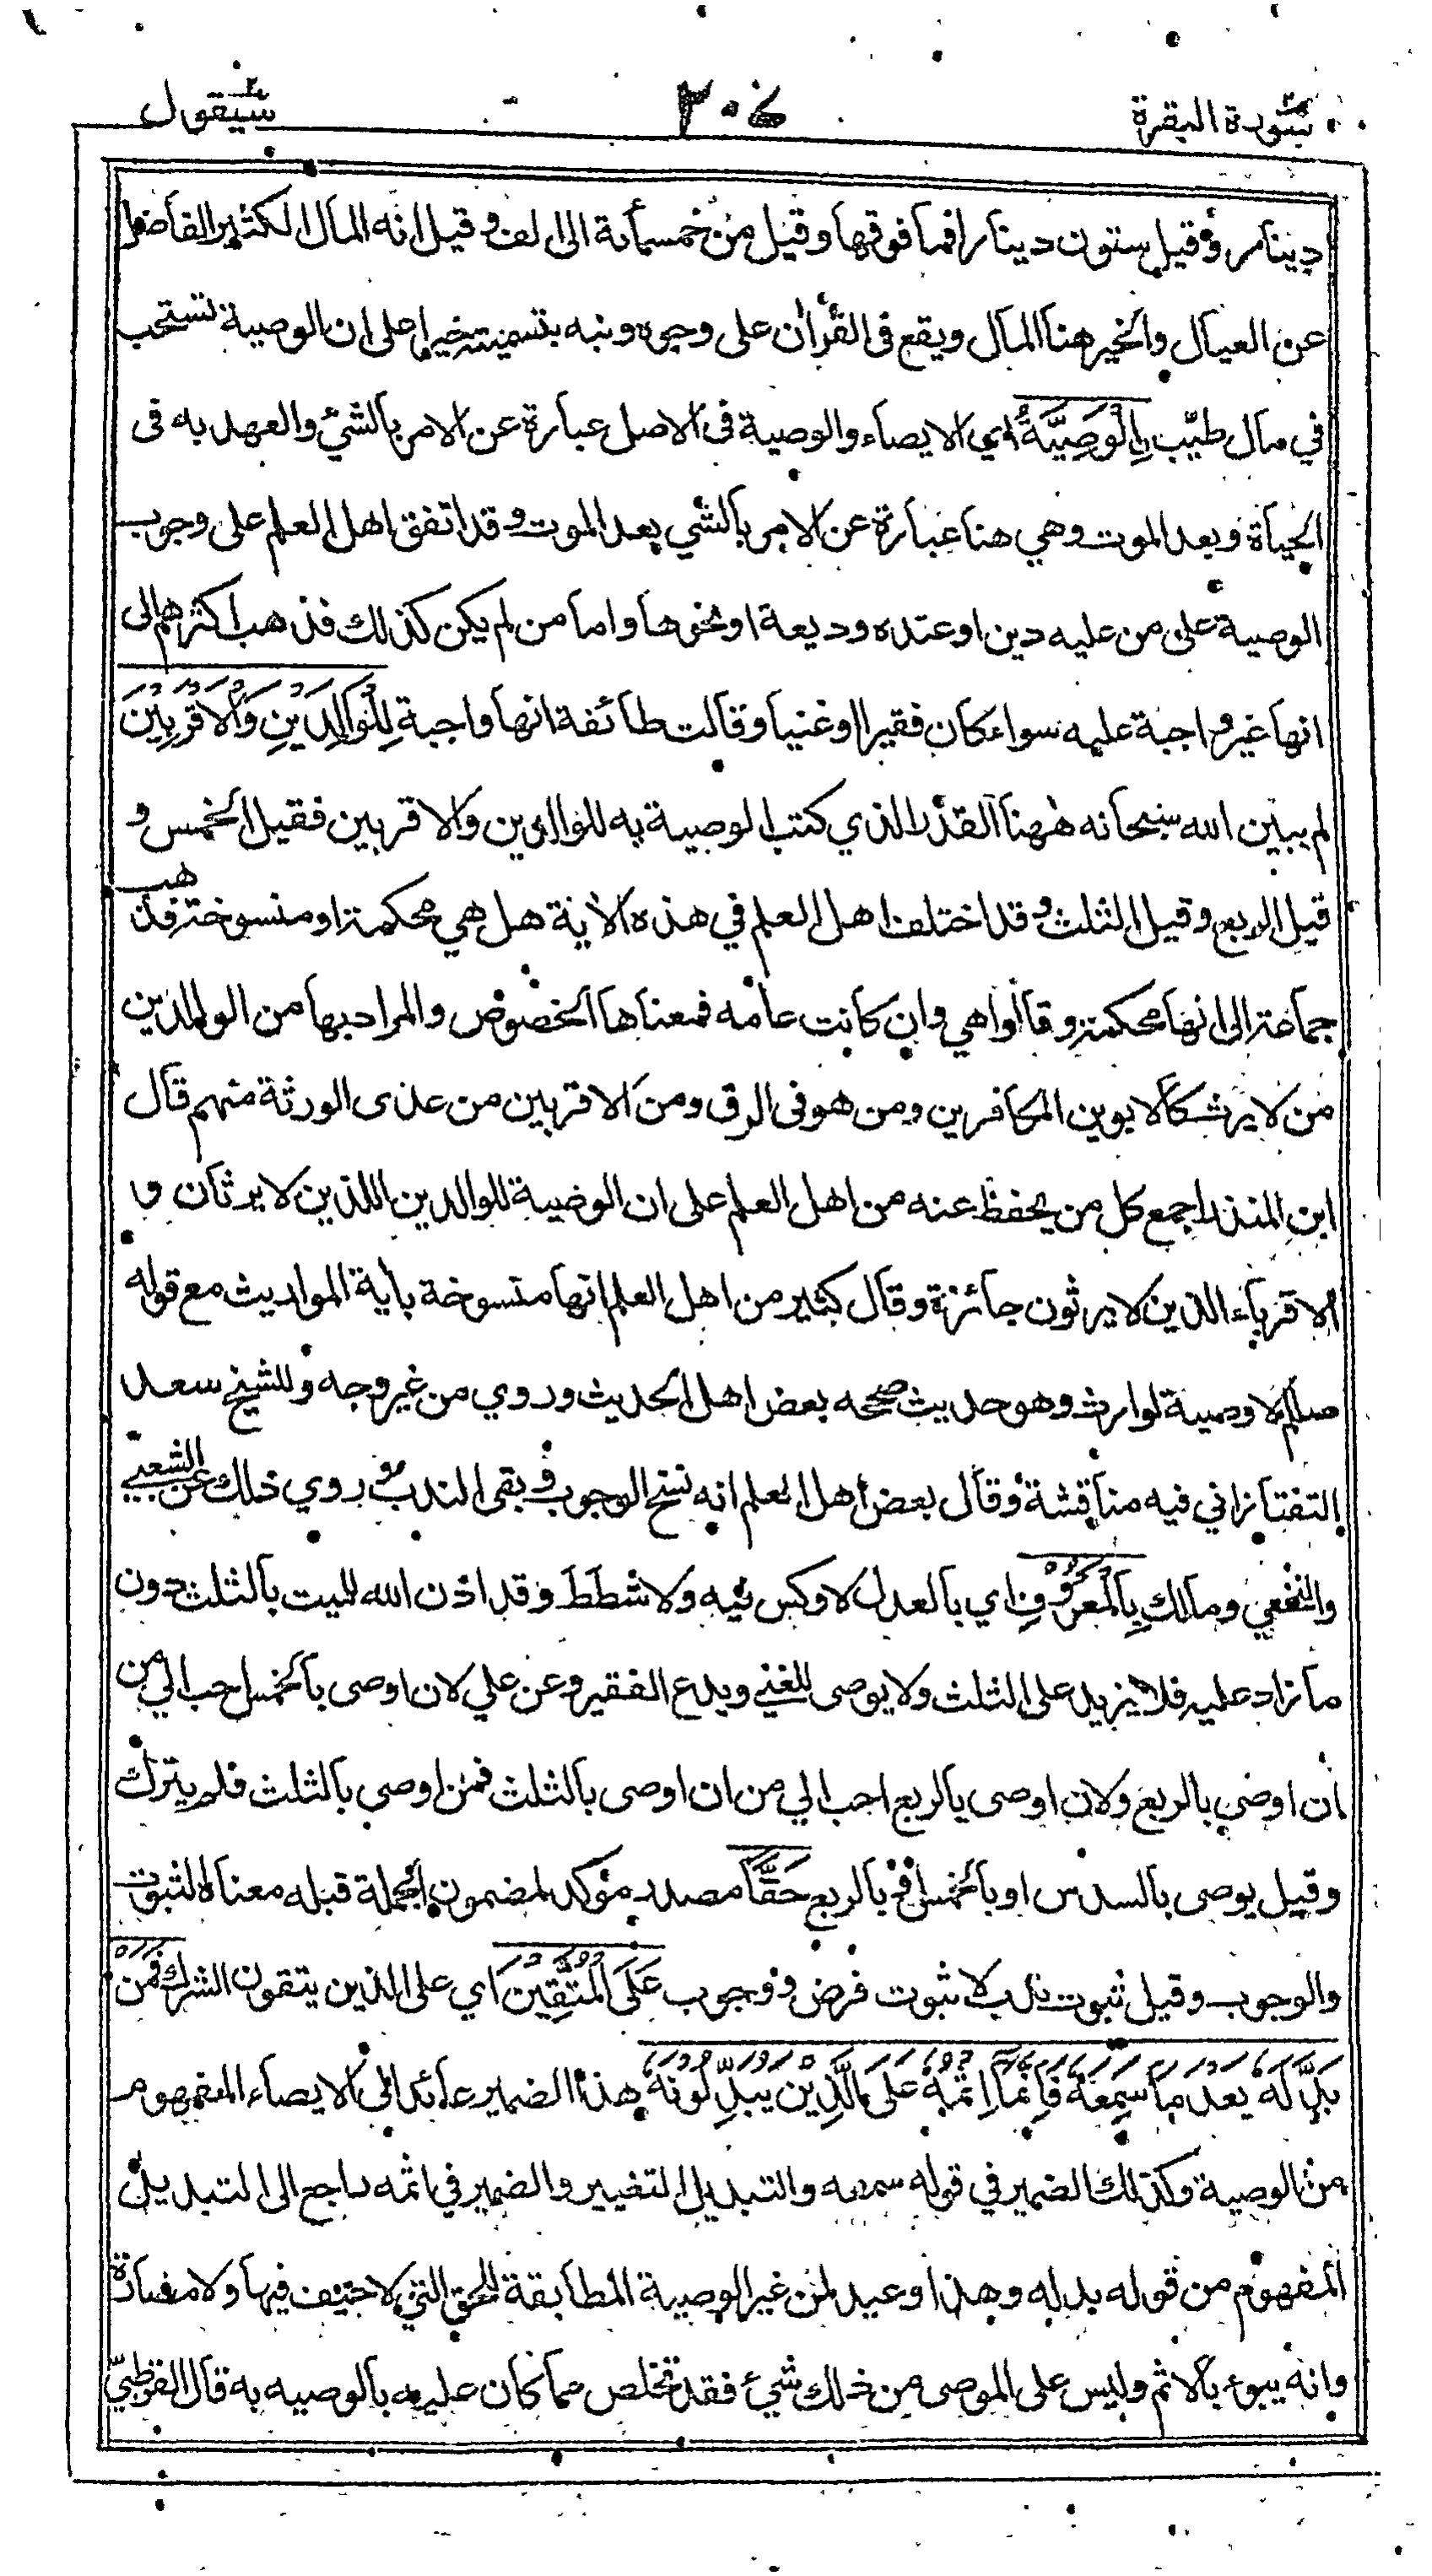 سورة البقرة ٣٠٤ سيقول
دينار وقيل ستون دينارا فما فوقها وقيل من خمسمأئة الى الف وقيل انه المال الكثير الفاضل
عن العيال والخير هنا المال ويقع فى القرأن على وجوه ونبه بتسميته خيرا على ان الوصية تستحب
في مال طيّب بِالْوَصِيَّةُ اي الايصاء والوصية فى الاصل عبارة عن الامر بالشئ والعهد به فى
الحياة وبعد الموت وهي هنا عبارة عن الامر بالشي بعد الموت وقد اتفق اهل العلم على وجوب
الوصية على من عليه دين او عنده وديعة او نحوها واما من لم يكن كذلك فذهب اكثرهم الى
انها غير واجبة عليه سواء كان فقيرا او غنيا وقالت طائفة انها واجبة لِلْوَالِدَيْنِ وَالْاَقْرَبِيْنَ
لم يبين الله سبحانه ههنا القدر الذي كتب الوصية به للوالدين والاقربين فقيل الخمس و
قيل الربع وقيل الثلث وقد اختلف اهل العلم في هذه الأية هل هي محكمة او منسوخة فذهب
جماعة الى انها محكمة وقالوا هي وان كانت عامه فمعناها الخصوص والمراد بها من الوالدين
من لا يرث كالابوين الكافرين ومن هو فى الرق ومن الاقربين من عدى الورثة منهم قال
ابن المنذر اجمع كل من يحفظ عنه من اهل العلم على ان الوصية للوالدين اللذين لا يرثان و
الاقرباء الذين لا يرثون جائزة وقال كثير من اهل العلم انها منسوخة بأية المواريث مع قوله
صللم لا وصية لوارث وهو حديث صححه بعض اهل الحديث وروي من غير وجه وللشيخ سعد
التفتازاني فيه مناقشة وقال بعض اهل العلم انه نسخ الوجوب وبقى الندب وروي ذلك عن الشعبي
والنخعي ومالك بِالْمَعْرُوْفِ اي بالعدل لا وكس فيه ولا شطط وقد اذن الله للميت بالثلث دون
ما زاد عليه فلا يزيد على الثلث ولا يوصى للغني ويدع الفقير وعن علي لان اوصى بالخمس احب الي من
ان اوصي بالربع ولان اوصى بالربع احب الي من ان اوصى بالثلث فمن اوصى بالثلث فلم يترك
وقيل يوصى بالسدس او بالخمس او بالربع حَقًّا مصدر مؤكد لمضمون الجملة قبله معناه الثبوت
والوجوب وقيل ثبوت ندب لا ثبوت فرض ووجوب عَلَى الْمُتَّقِيْنَ اي على الذين يتقون الشرك فَمَنْ
بَدَّلَهٗ بَعْدَ مَا سَمِعَهٗ فَاِنَّمَا اِثْمُهٗ عَلَى الَّذِيْنَ يُبَدِّلُوْنَهٗ هذا الضمير عائد الى الايصاء المفهوم
من الوصية وكذلك الضمير في قوله سمعه والتبديل التغيير والضمير في اثمه راجع الى التبديل
المفهوم من قوله بدله وهذا وعيد لمن غير الوصية المطابقة للحق التي لا حيف فيها ولا مضارة
وانه يبوء بالاثم وليس على الموصى من ذلك شئ فقد تخلص مما كان عليه بالوصيه به قال القرطبيّ